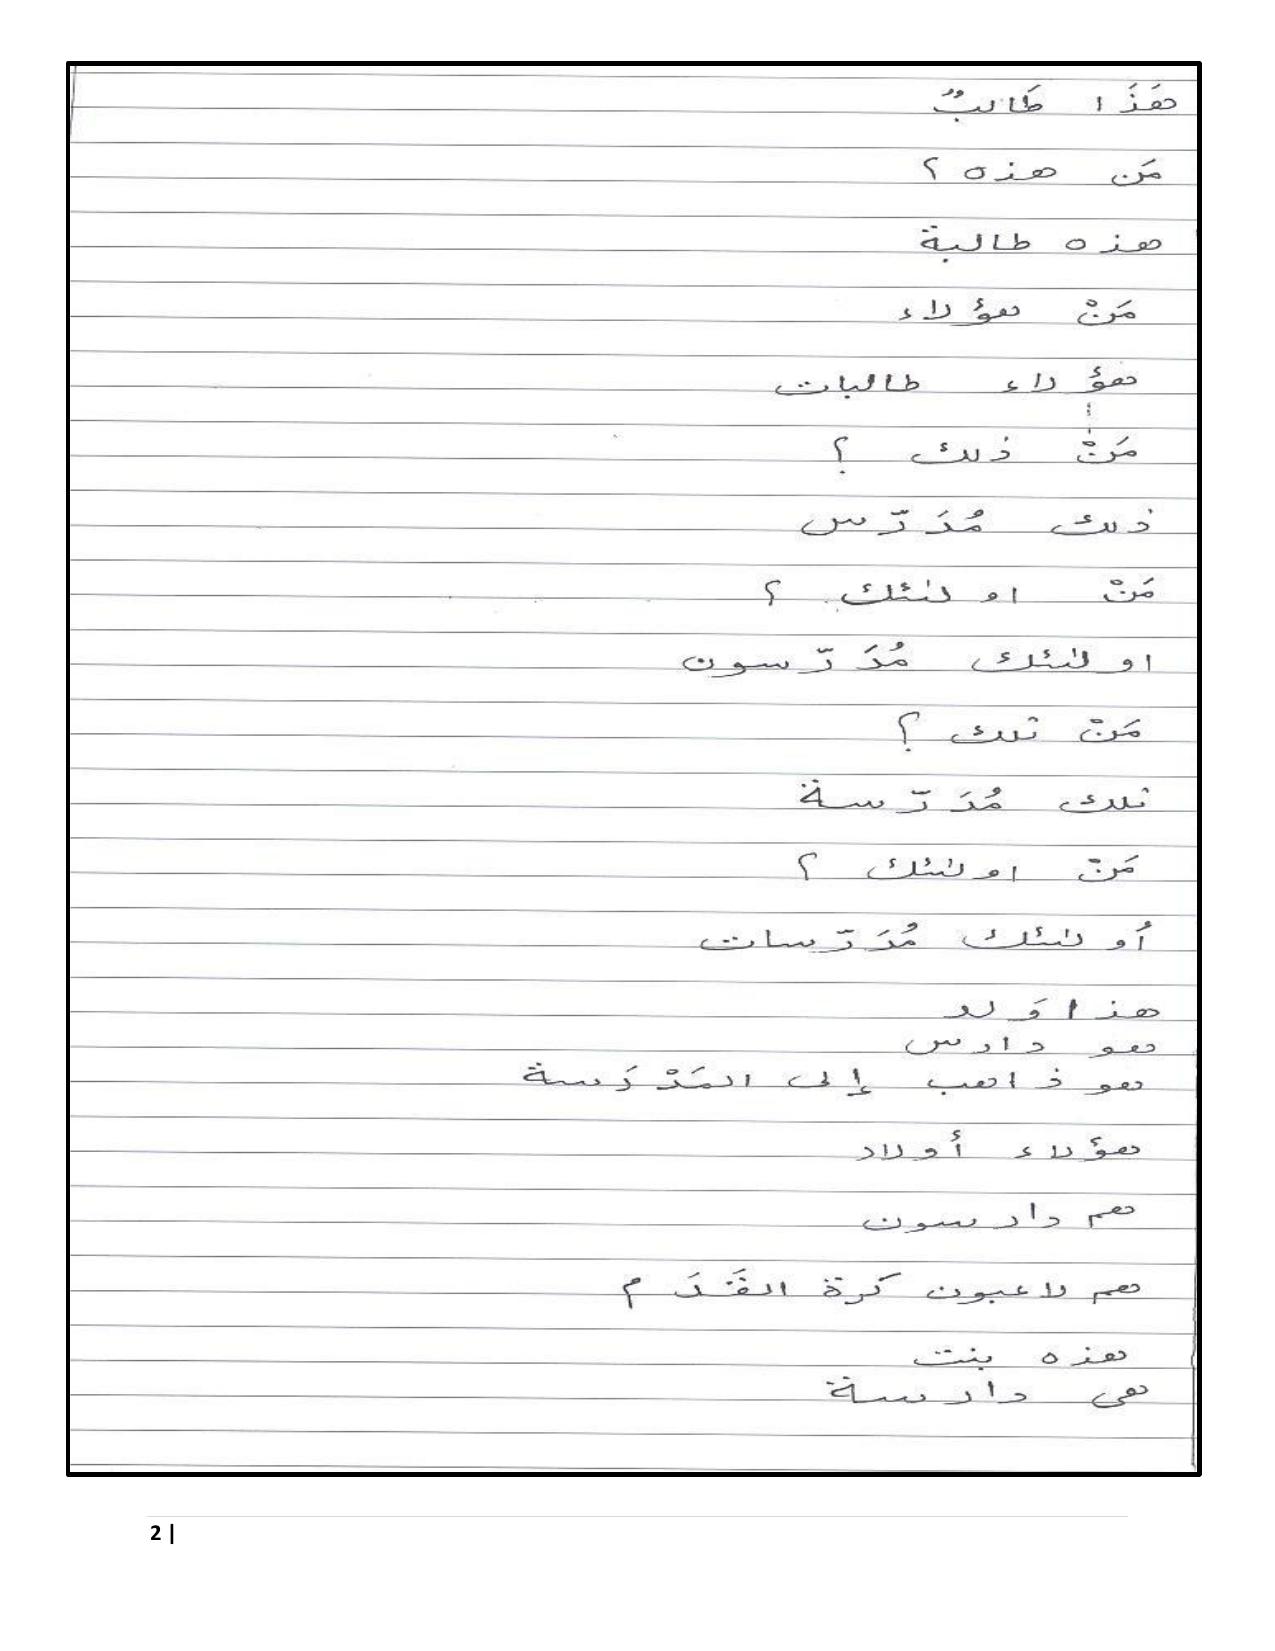 هَذَا طَالبٌ
مَن هذه ؟
هذه طالبة
مَنْ هؤلاء
هؤلاء طالبات
مَنْ ذلك ؟
ذلك مُدَرّس
مَنْ اولئك ؟
اولئك مُدَرّسون
مَنْ تلك ؟
تلك مُدَرّسة
مَنْ اولئك ؟
أُولئك مُدَرّسات
هذا وَلد
هو دارس
هو ذاهب إلى المَدْرَسة
هؤلاء أولاد
هم دارسون
هم لاعبون كرة القَدَم
هذه بنت
هى دارسة
2 |